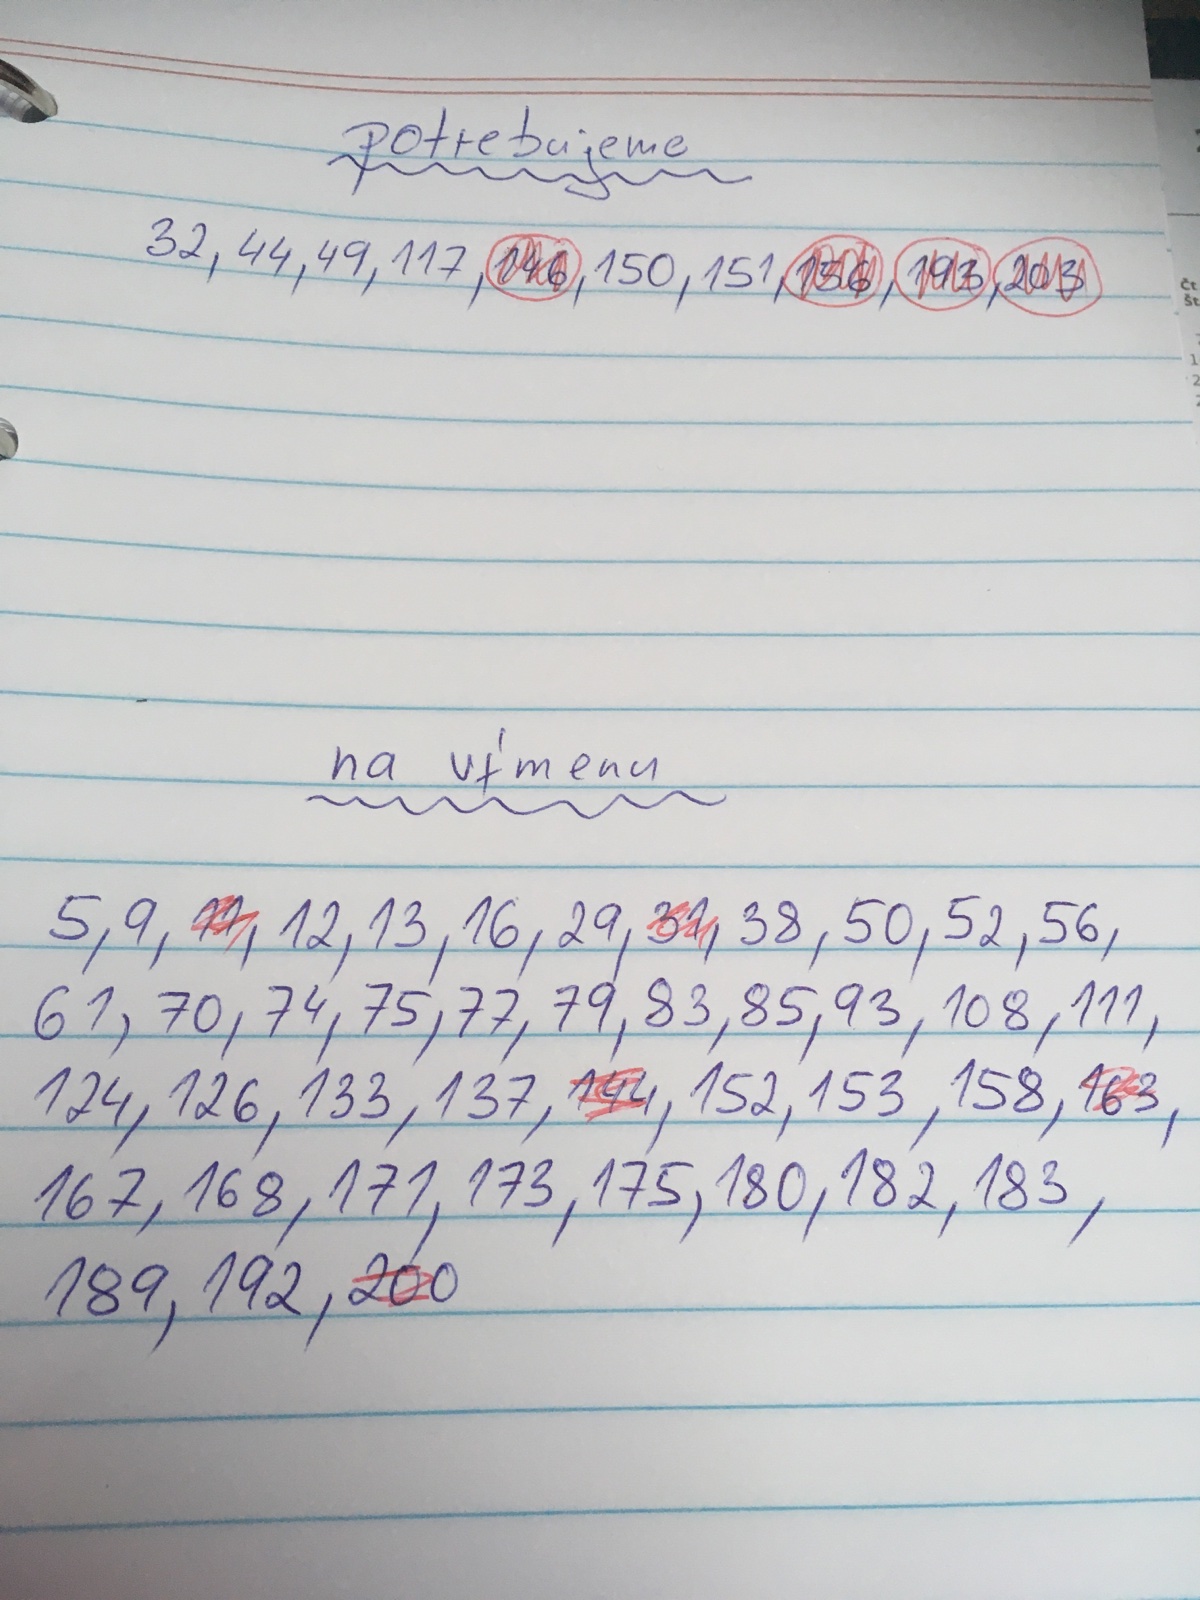 potrebujeme
32, 44, 49, 117, 146, 150, 151, 156, 193, 203
na výmenu
5, 9, 11, 12, 13, 16, 29, 31, 38, 50, 52, 56,
61, 70, 74, 75, 77, 79, 83, 85, 93, 108, 111,
124, 126, 133, 137, 144, 152, 153, 158, 163,
167, 168, 171, 173, 175, 180, 182, 183,
189, 192, 200